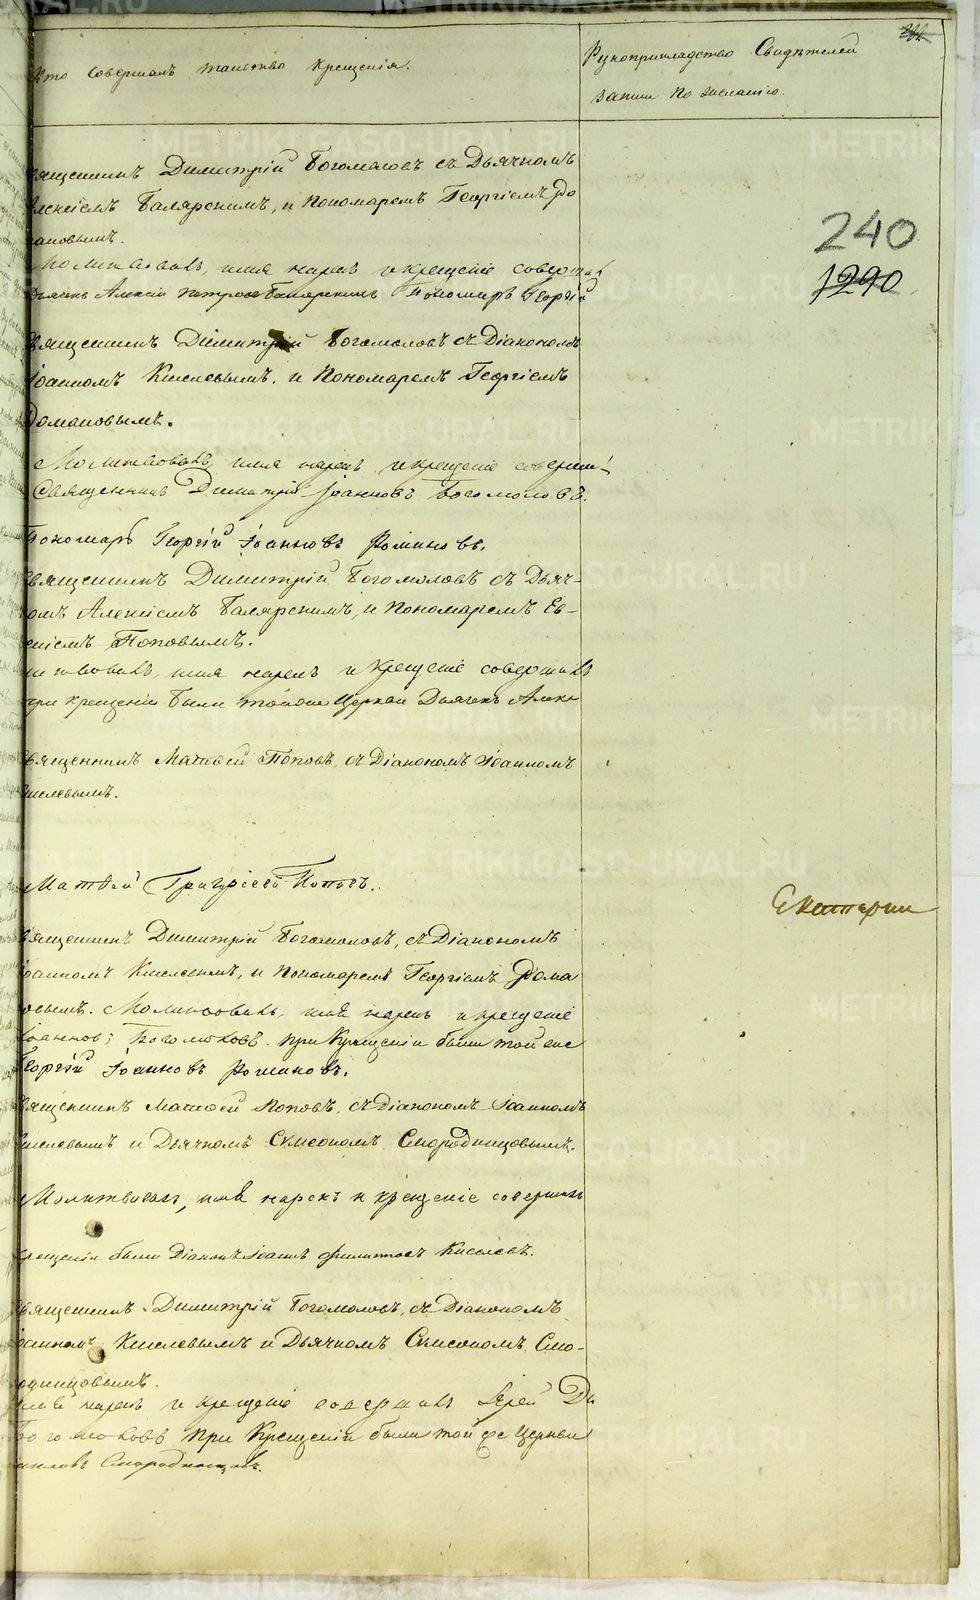 Кто совершалъ таинство крещенія.
Рукоприкладство Свидѣтелей
записи по желанію.
240
1290
вященникъ Димитрій Богомоловъ съ Дьячкомъ
лексіемъ Балярскимъ, и Пономаремъ Георгіемъ До
мановымъ.
Молитвовалъ, имя нарекъ и крещеніе соверш
Дьячекъ Алексій Балярскимъ Пономарь Георгій
вященникъ Димитрій Богомоловъ съ Діакономъ
Іоанномъ Киселевымъ, и Пономаремъ Георгіемъ
Домановымъ.
Молитвовалъ имя нарекъ и крещеніе соверши
Священникъ Димитрій Іоанновъ Богомоловъ.
Пономарь Георгій Іоанновъ Романовъ.
вященникъ Димитрій Богомоловъ съ Дьяч-
комъ Алексіемъ Балярскимъ, и Пономаремъ Ев-
еніемъ Поповымъ.
имя нарекъ и крещеніе совершилъ
при крещеніи были тойже Церкви Дьячекъ Алекс
вященникъ Матѳей Поповъ, съ Діакономъ Іоанномъ
иселевымъ.
Матѳей Григорьевъ Поповъ.
Екатерин
вященникъ Димитрій Богомоловъ, съ Діакономъ
Іоанномъ Киселевымъ, и Пономаремъ Георгіемъ Дома
овымъ. Молитвовалъ, имя нарекъ и крещеніе
Іоанновъ Богомоловъ при Крещеніи были той же
Георгій Іоанновъ Романовъ.
вященникъ Матѳей Поповъ, съ Діакономъ Іоанномъ
иселевымъ и Дьячкомъ Симеономъ Смородинцовымъ.
Молитвовалъ, имя нарекъ и крещеніе совершилъ
крещеніи были Діаконъ Іоаннъ Филиппов Киселевъ.
вященникъ Димитрій Богомоловъ, съ Діакономъ
Іоанномъ Киселевымъ и Дьячкомъ Симеономъ Смо-
одинцовымъ.
имя нарекъ и крещеніе совершилъ Іерей Ди
Богомоловъ при Крещеніи были той же Церкви
Смородинцовъ.